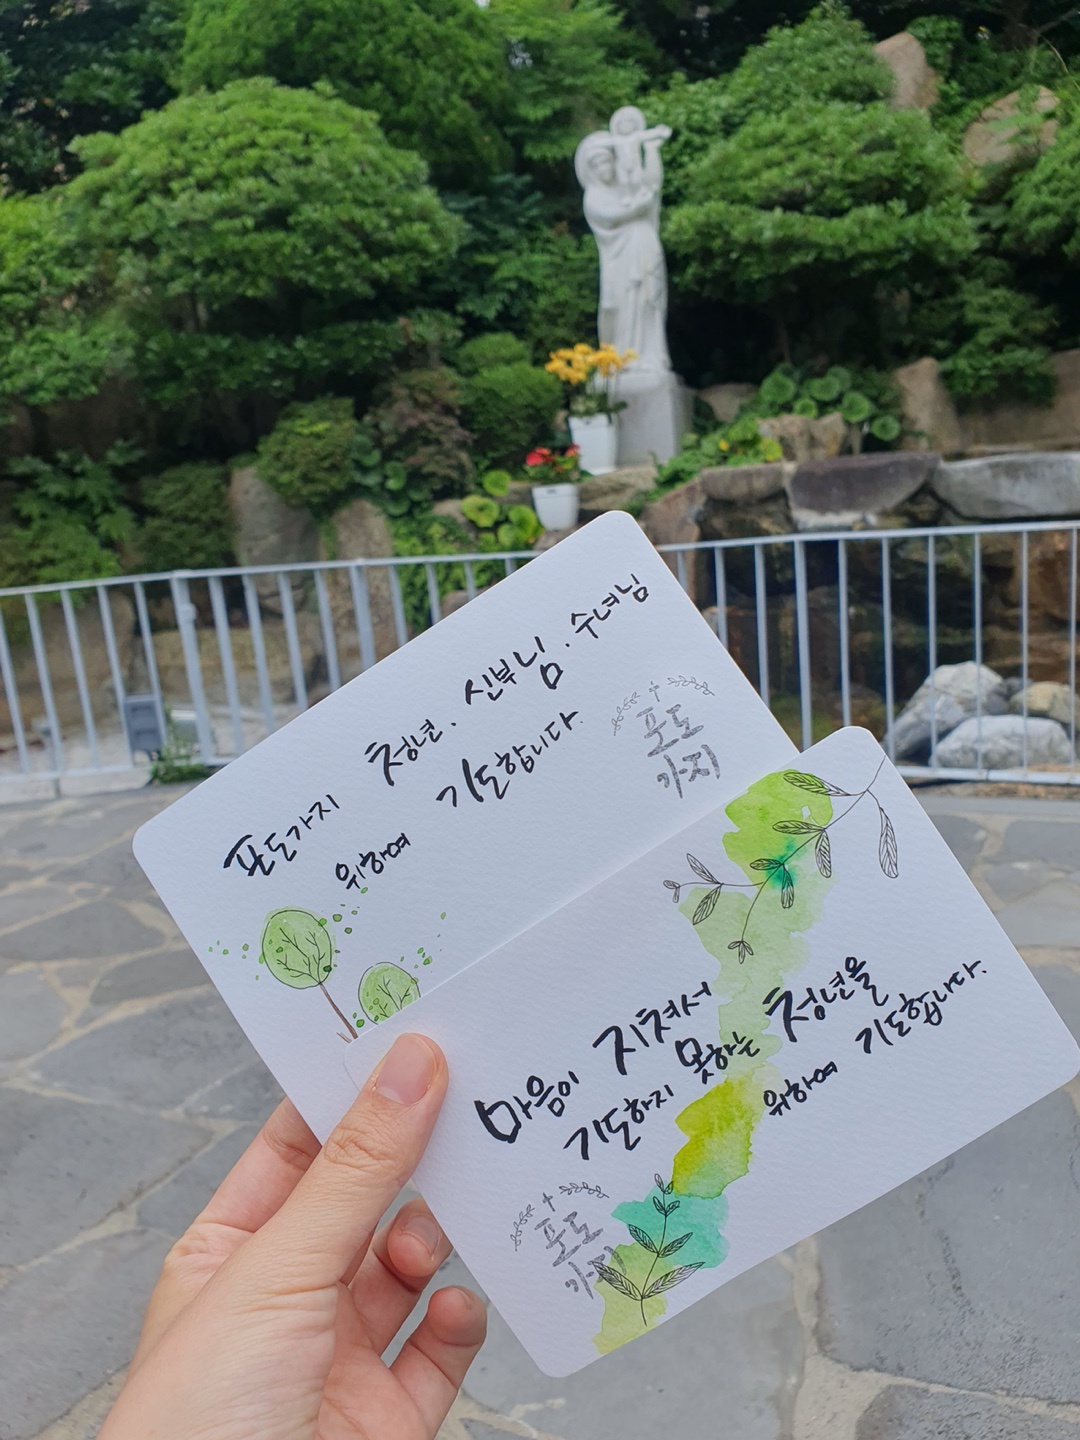 포도가지 청년. 신부님. 수녀님
위하여 기도합니다.
포도
가지
마음이 지쳐서
기도하지 못하는 청년을
위하여 기도합니다.
포도
가지